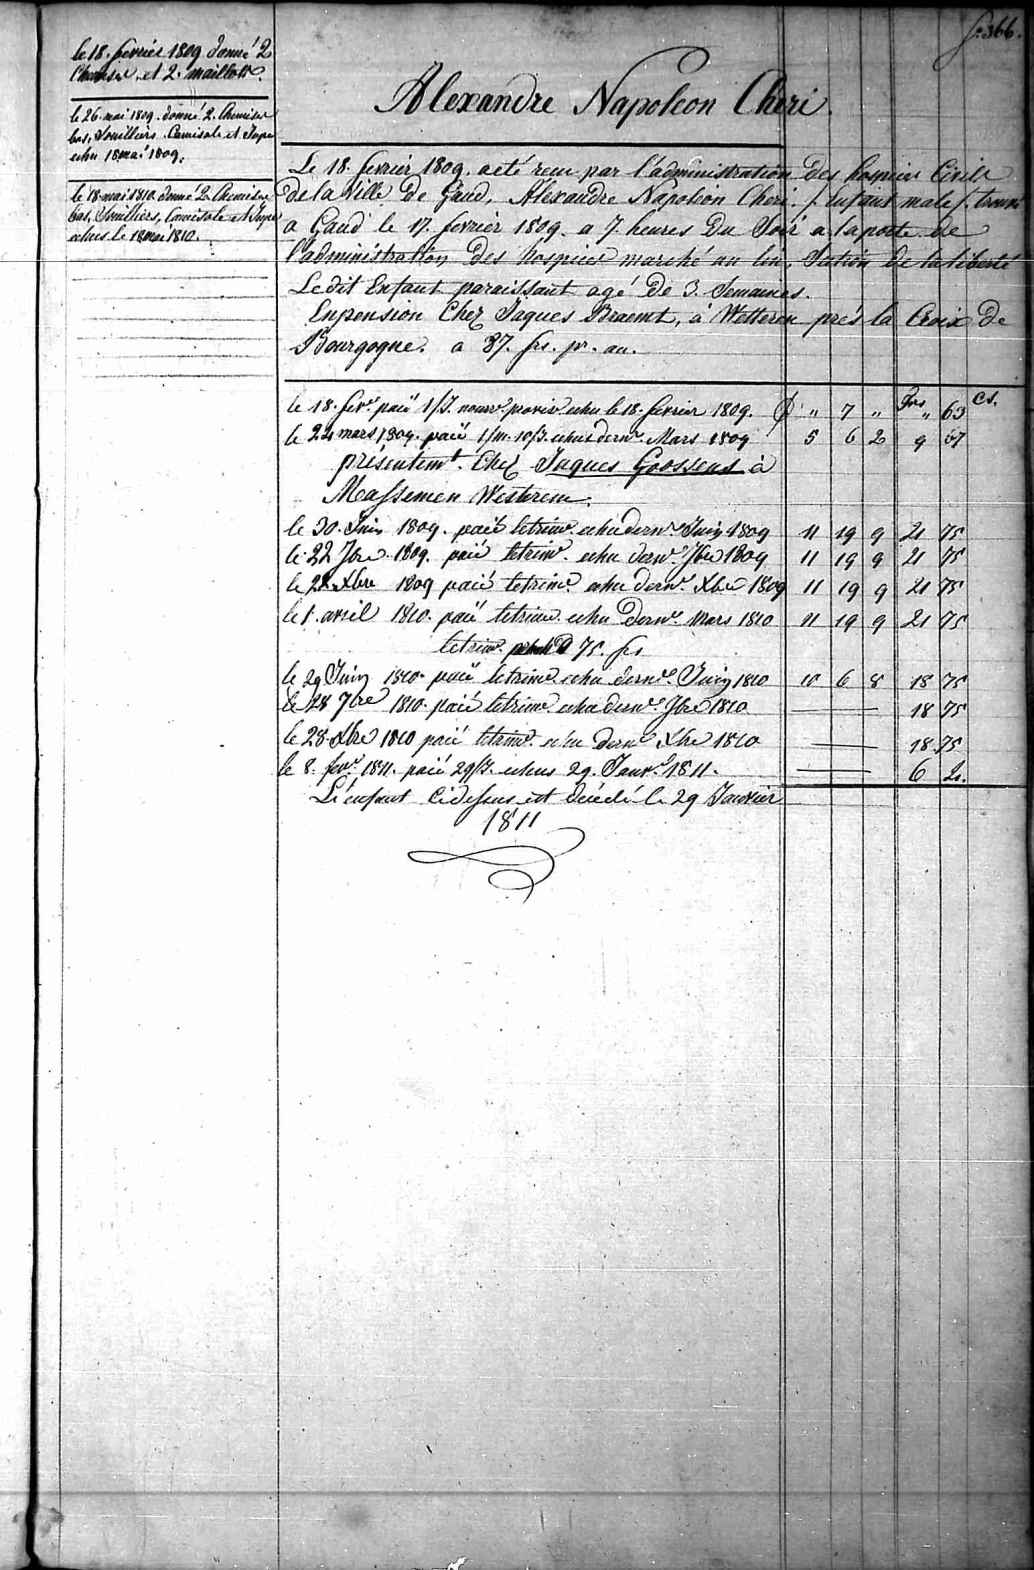 f. 366.
le 18. fevrier 1809 donné 2
Chemises et 2. maillots.
le 26. mai 1809. donné 2. Chemises
bas, Souilliers Camisole et Jupe
echu 18 mai 1809.
le 18 mai 1810. donné 2 Chemises
bas, Souilliers, Camisole et Jupe
echus le 18 mai 1810.
Alexandre Napoleon Cheri.
Le 18. fevrier 1809. a eté recu par l'administration Des hospices Civils
de la Ville De Gand, Alexandre Napoleon Cheri. /. Enfant male /. trouvé
a Gand le 17. fevrier 1809. a 7. heures Du Soir a la porte de
l'administration Des hospices marché au lin, Section De la liberté
Le dit Enfant paraissant agé De 3. Semaines.
En pension Chez Jaques Braemt, a Wetteren prés la Croix De
Bourgogne. a 87. frs. pr. an.
frs cs.
le 18. fevr. paié 1/J. nourr. provis. echu le 18. fevrier 1809. " 7 " " 63
le 24 mars 1809. paié 1/m. 10/J. echus dernr. Mars 1809 5 6 2 9 67
présentemt. Chez Jaques Goossens à
Massemen Westrem.
le 30. Juin 1809. paié le trimr. echu dernr. Juin 1809 11 19 9 21 75
le 22 7bre. 1809. paié le trimr. echu dernr. 7bre 1809 11 19 9 21 75
le 22 Xbre 1809 paié le trimr. echu dernr. Xbre 1809 11 19 9 21 75
le 1. avril 1810. paié le trimr. echu Dernr. Mars 1810 11 19 9 21 75
le trimr. a 75. frs
le 29 Juin 1810. paié le trimr. echu dernr. Juin 1810 10 6 8 18 75
le 28 7bre 1810. paié le trimr. echu dernr. 7bre 1810 — 18 75
le 28 Xbre 1810 paié le trimr. echu dernr. Xbre 1810 — 18 75
le 8. fevr. 1811. paié 29/J. echus 29. Janvr. 1811. — 6 4.
L'enfant ci dessus est décédé le 29 Janvier
1811